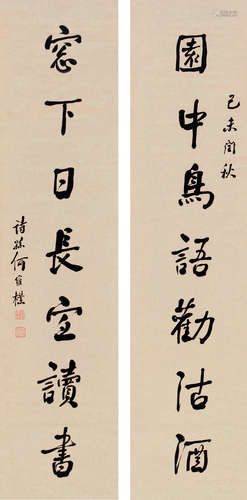 己未閏秋
園中鳥語勸沽酒
窓下日長宜讀書
詩孫何維樸